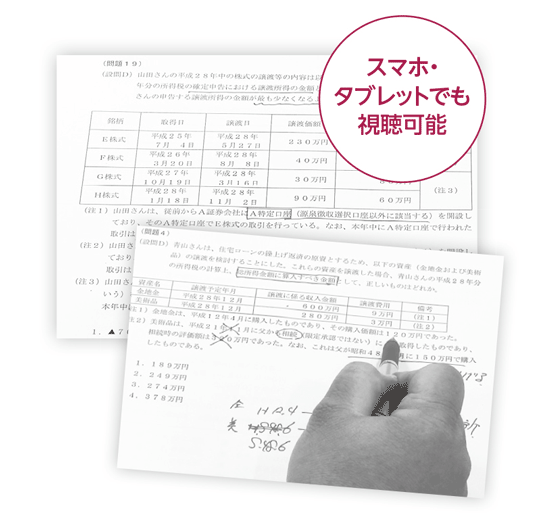 スマホ・
タブレットでも
視聴可能
(問題19)
(設問D) 山田さんの平成28年中の株式の譲渡等の内容は以
年分の所得税の確定申告における譲渡所得の金額
さんの申告する譲渡所得の金額が最も少なくなる
銘柄 取得日 譲渡日 譲渡価額
E株式 平成25年7月4日 平成28年5月27日 230万円
F株式 平成26年3月20日 平成28年8月8日 40万円
G株式 平成27年10月19日 平成28年3月16日 30万円
H株式 平成28年1月18日 平成28年11月2日 90万円 60万円 (注3)
(注1) 山田さんは、従前からA証券会社にA特定口座(源泉徴収選択口座以外に該当する)を開設し
ており、そのA特定口座でE株式の取引を行っている。なお、本年中にA特定口座で行われた
取引は
(注2) 山田さ
ており
取引は
(注3) 山田さ
いう)
1.
(問題4)
(設問D) 青山さんは、住宅ローンの繰上げ返済の原資とするため、以下の資産(金地金および美術
品)の譲渡を検討することにした。これらの資産を譲渡した場合、青山さんの平成28年分
の所得税の計算上、総所得金額に算入すべき金額として、正しいものはどれか。
資産名 譲渡予定年月 譲渡に係る収入金額 譲渡費用 備考
金地金 平成28年12月 600万円 9万円 (注1)
美術品 平成28年12月 280万円 3万円 (注2)
(注1) 金地金は、平成12年4月に購入したものであり、その購入価額は120万円であった。
(注2) 美術品は、平成21年 月に父から相続(限定承認ではない)に 取得したものであり、
相続時の評価額は 万円であった。なお、これは父が昭和48 に150万円で購入
したものである。
1. 189万円
2. 249万円
3. 274万円
4. 378万円
金 H12.4
美
S48.6